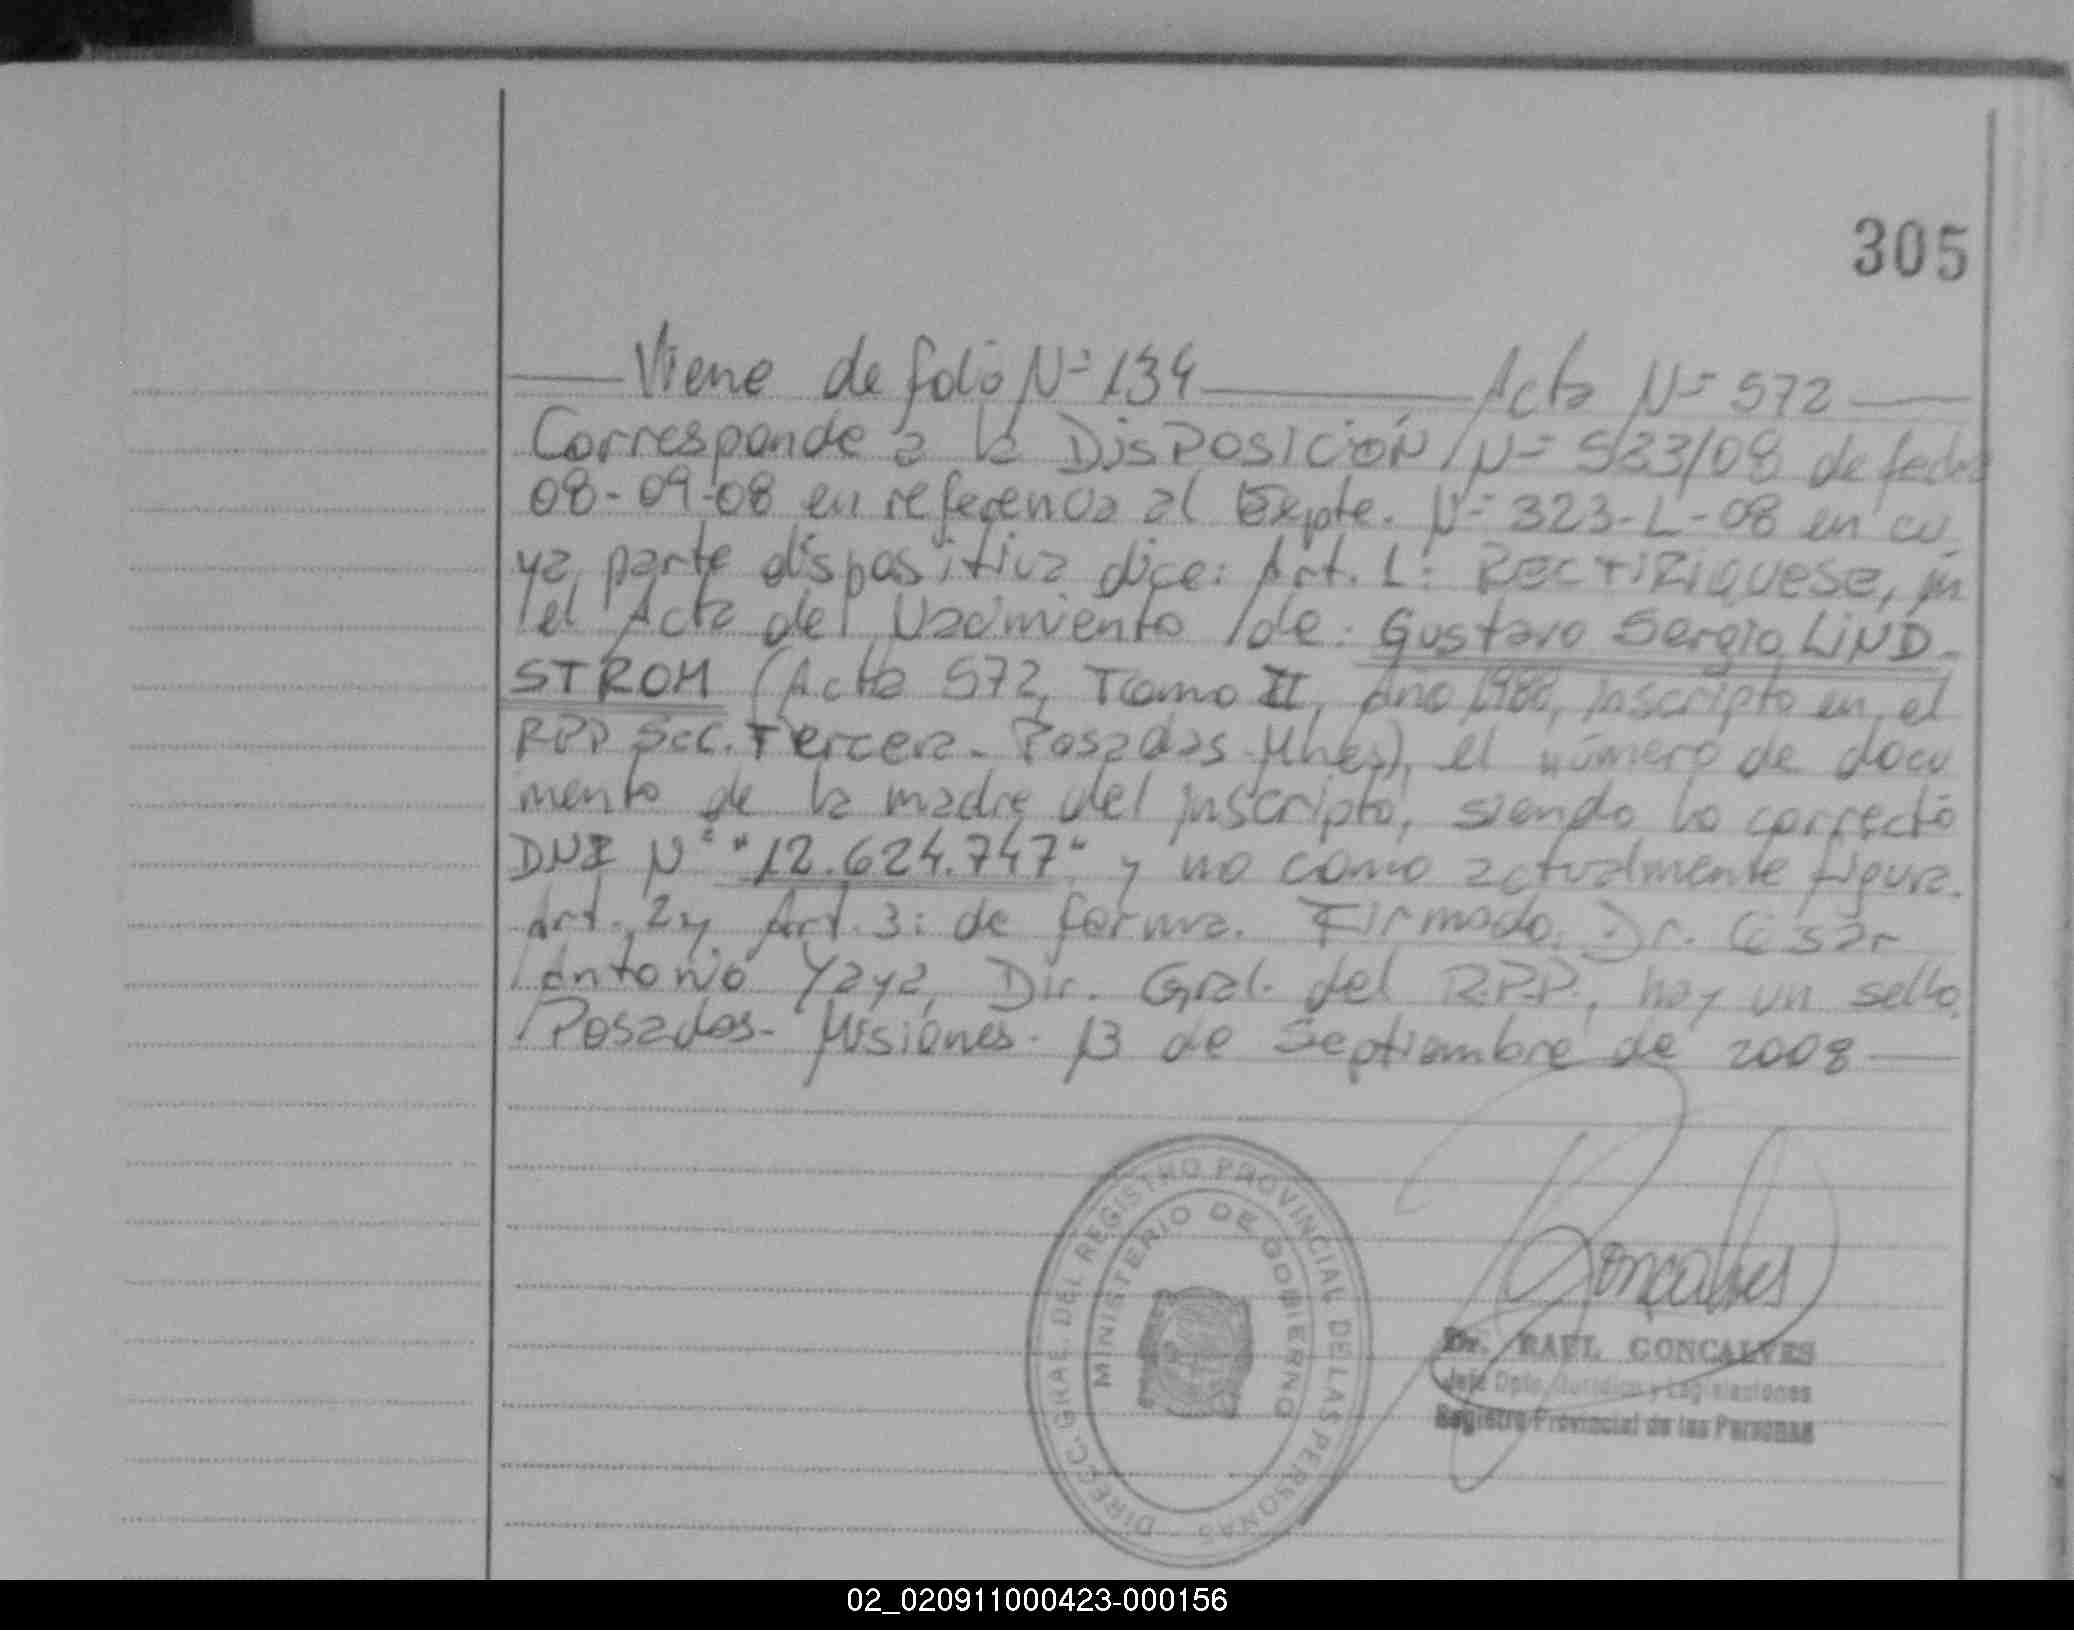 305
Viene de folio Nº 134 Acta Nº 572
Corresponde a la DISPOSICIÓN Nº 533/08 de fecha
08-09-08 en referencia al Expte. Nº 323-L-08 en cu
ya parte dispositiva dice: Art. 1: RECTIFIQUESE, en
el Acta de Nacimiento de: Gustavo Sergio LIND-
STROM (Acta 572, Tomo II, Año 1988, Inscripto en el
RPP Sec. Tercera - Posadas Mnes), el número de docu
mento de la madre del inscripto, siendo lo correcto
DNI Nº "12.624.747" y no como actualmente figura.
Art. 2 y Art. 3: de forma. Firmado: Dr. César
Antonio Yaya, Dir. Gral. del R.P.P., hay un sello.
Posadas - Misiones - 13 de Septiembre de 2008
DIRECC. GRAL. DEL REGISTRO PROVINCIAL DE LAS PERSONAS
MINISTERIO DE GOBIERNO
Goncalves
Dr. RAEL GONCALVES
Jefe Dpto. Jurídico y Legislaciones
Registro Provincial de las Personas
02_020911000423-000156